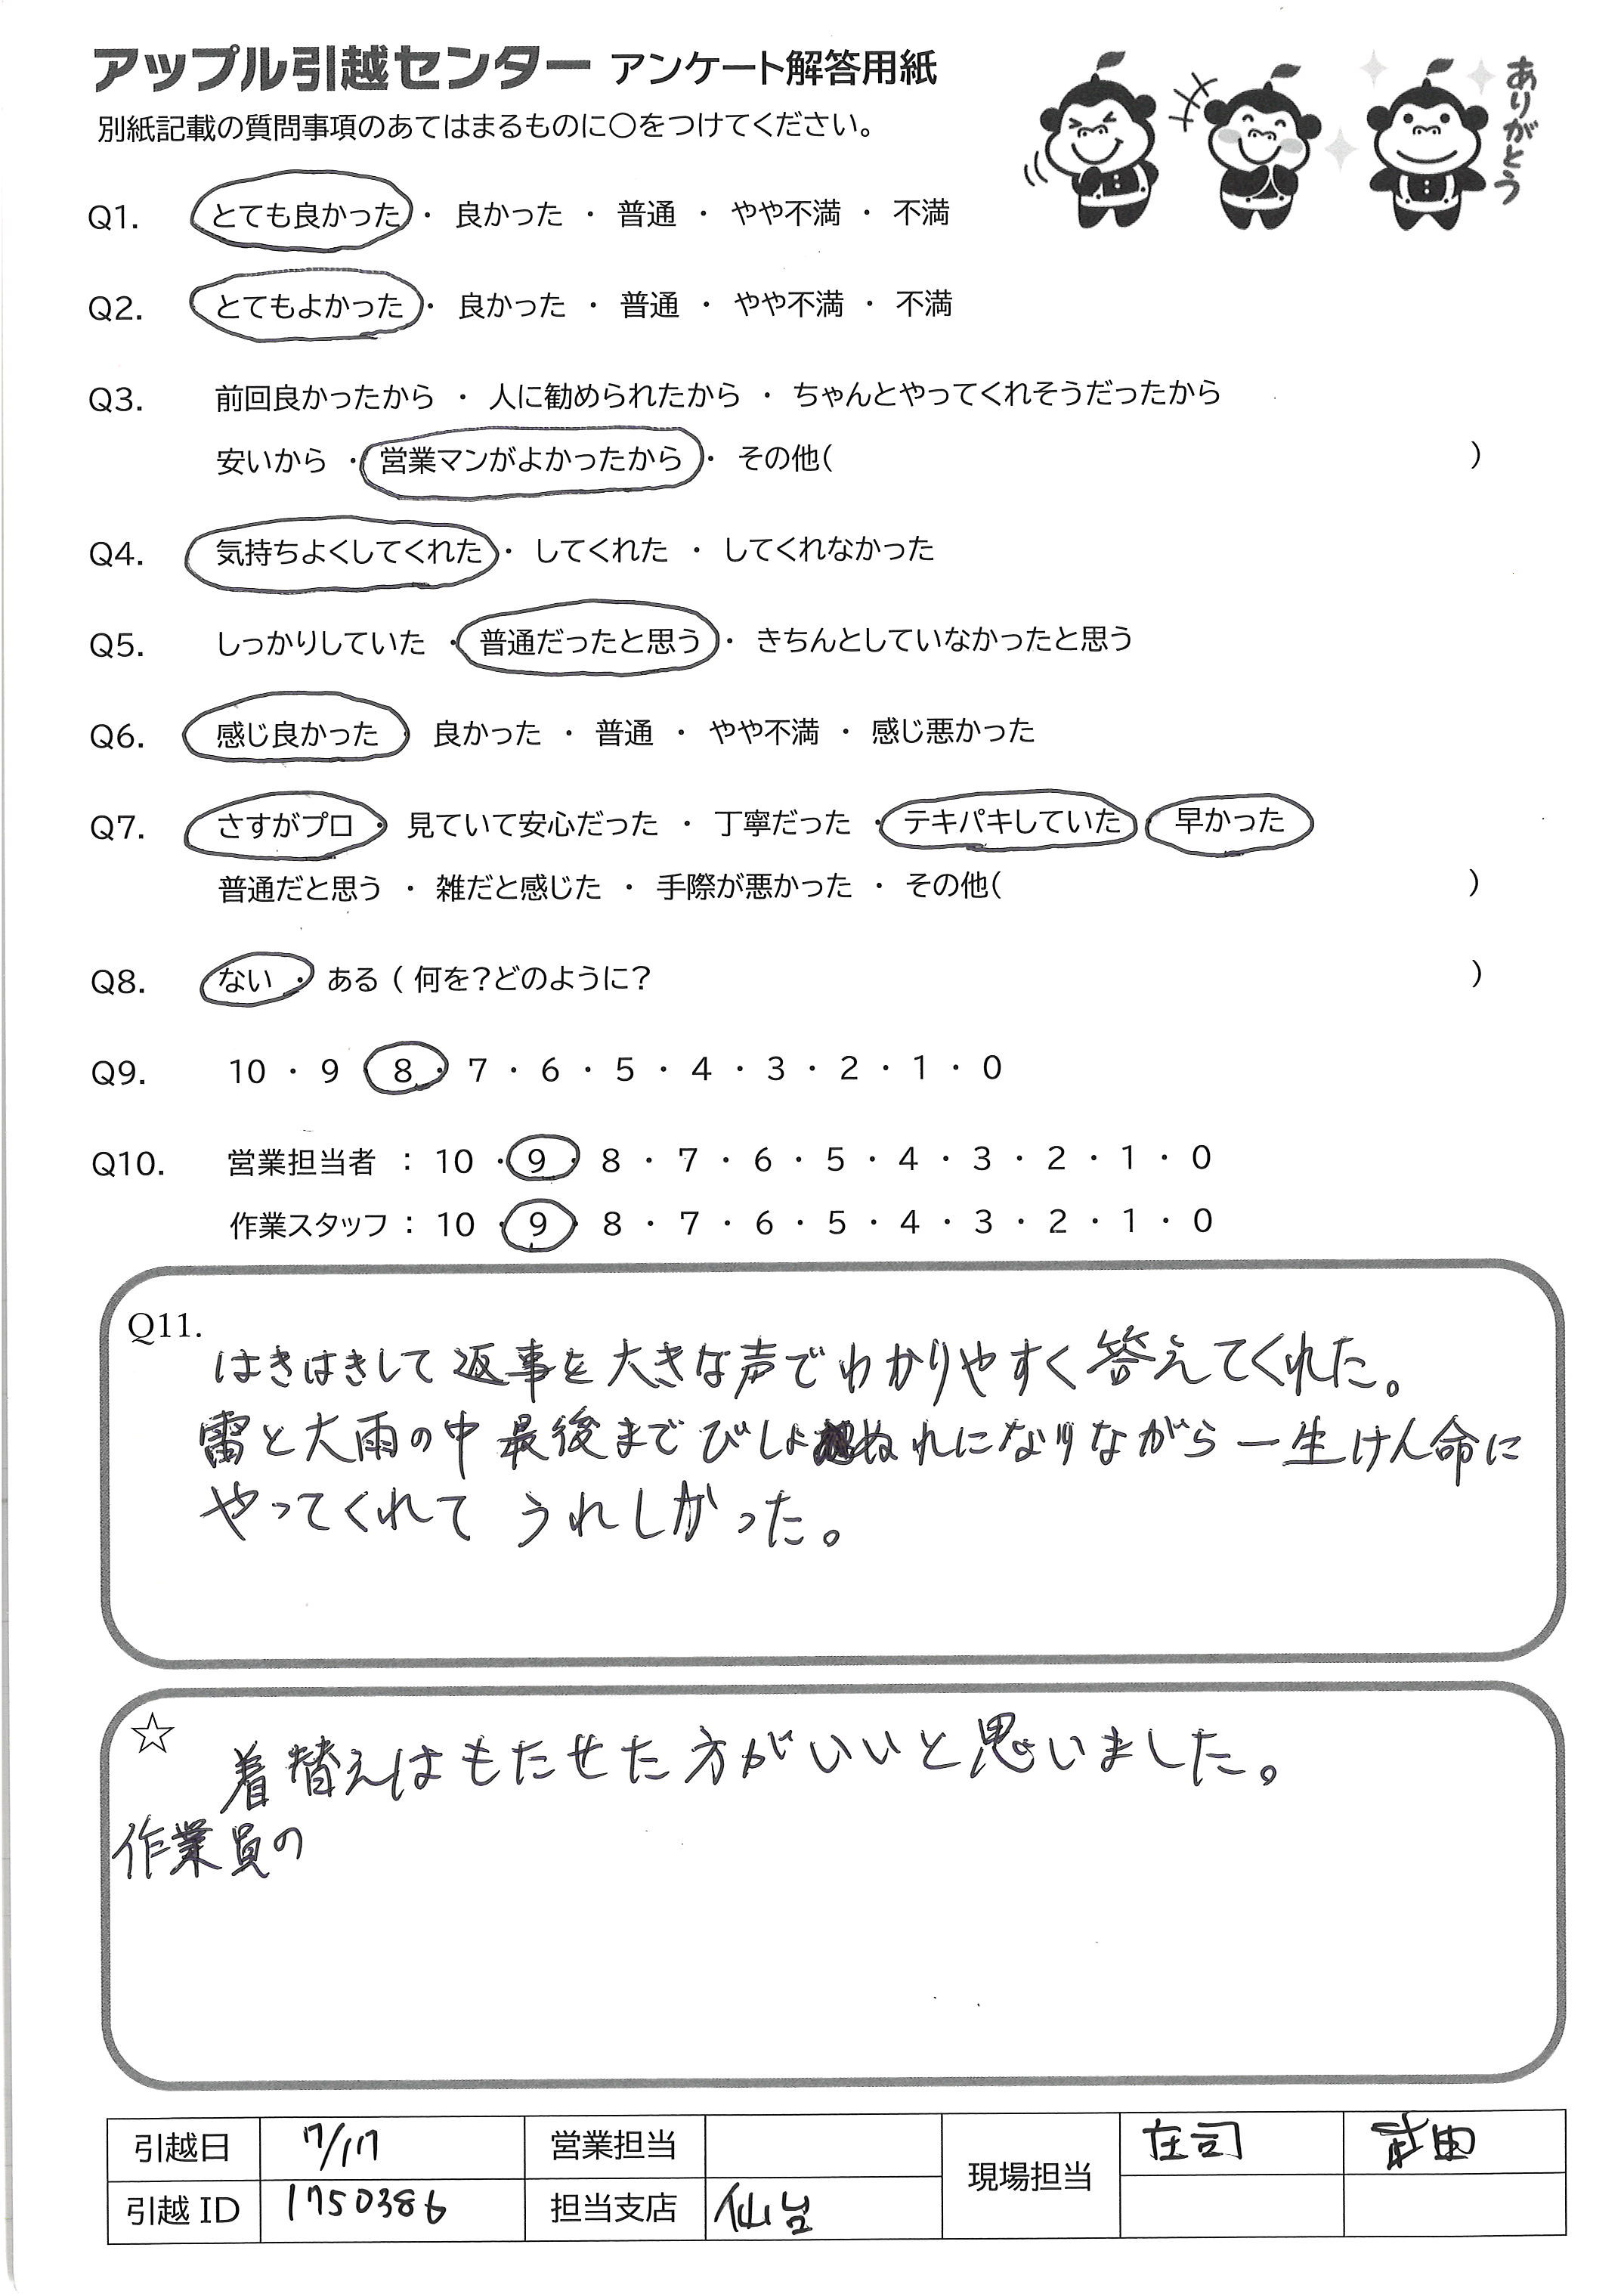 アップル引越センター アンケート解答用紙
ありがとう
別紙記載の質問事項のあてはまるものに○をつけてください。
Q1. とても良かった ・ 良かった ・ 普通 ・ やや不満 ・ 不満
Q2. とてもよかった ・ 良かった ・ 普通 ・ やや不満 ・ 不満
Q3. 前回良かったから ・ 人に勧められたから ・ ちゃんとやってくれそうだったから
安いから ・ 営業マンがよかったから ・ その他( )
Q4. 気持ちよくしてくれた ・ してくれた ・ してくれなかった
Q5. しっかりしていた ・ 普通だったと思う ・ きちんとしていなかったと思う
Q6. 感じ良かった 良かった ・ 普通 ・ やや不満 ・ 感じ悪かった
Q7. さすがプロ ・ 見ていて安心だった ・ 丁寧だった ・ テキパキしていた 早かった
普通だと思う ・ 雑だと感じた ・ 手際が悪かった ・ その他( )
Q8. ない ・ ある ( 何を?どのように? )
Q9. 10 ・ 9 8 ・ 7 ・ 6 ・ 5 ・ 4 ・ 3 ・ 2 ・ 1 ・ 0
Q10. 営業担当者 : 10 ・ 9 ・ 8 ・ 7 ・ 6 ・ 5 ・ 4 ・ 3 ・ 2 ・ 1 ・ 0
作業スタッフ : 10 ・ 9 ・ 8 ・ 7 ・ 6 ・ 5 ・ 4 ・ 3 ・ 2 ・ 1 ・ 0
Q11.
はきはきして返事を大きな声でわかりやすく答えてくれた。
雷と大雨の中最後までびしょぬれになりながら一生けん命に
やってくれて うれしかった。
☆
着替えはもたせた方がいいと思いました。
作業員の
引越日 7/17 営業担当 現場担当 庄司 武田
引越ID 1750386 担当支店 仙台